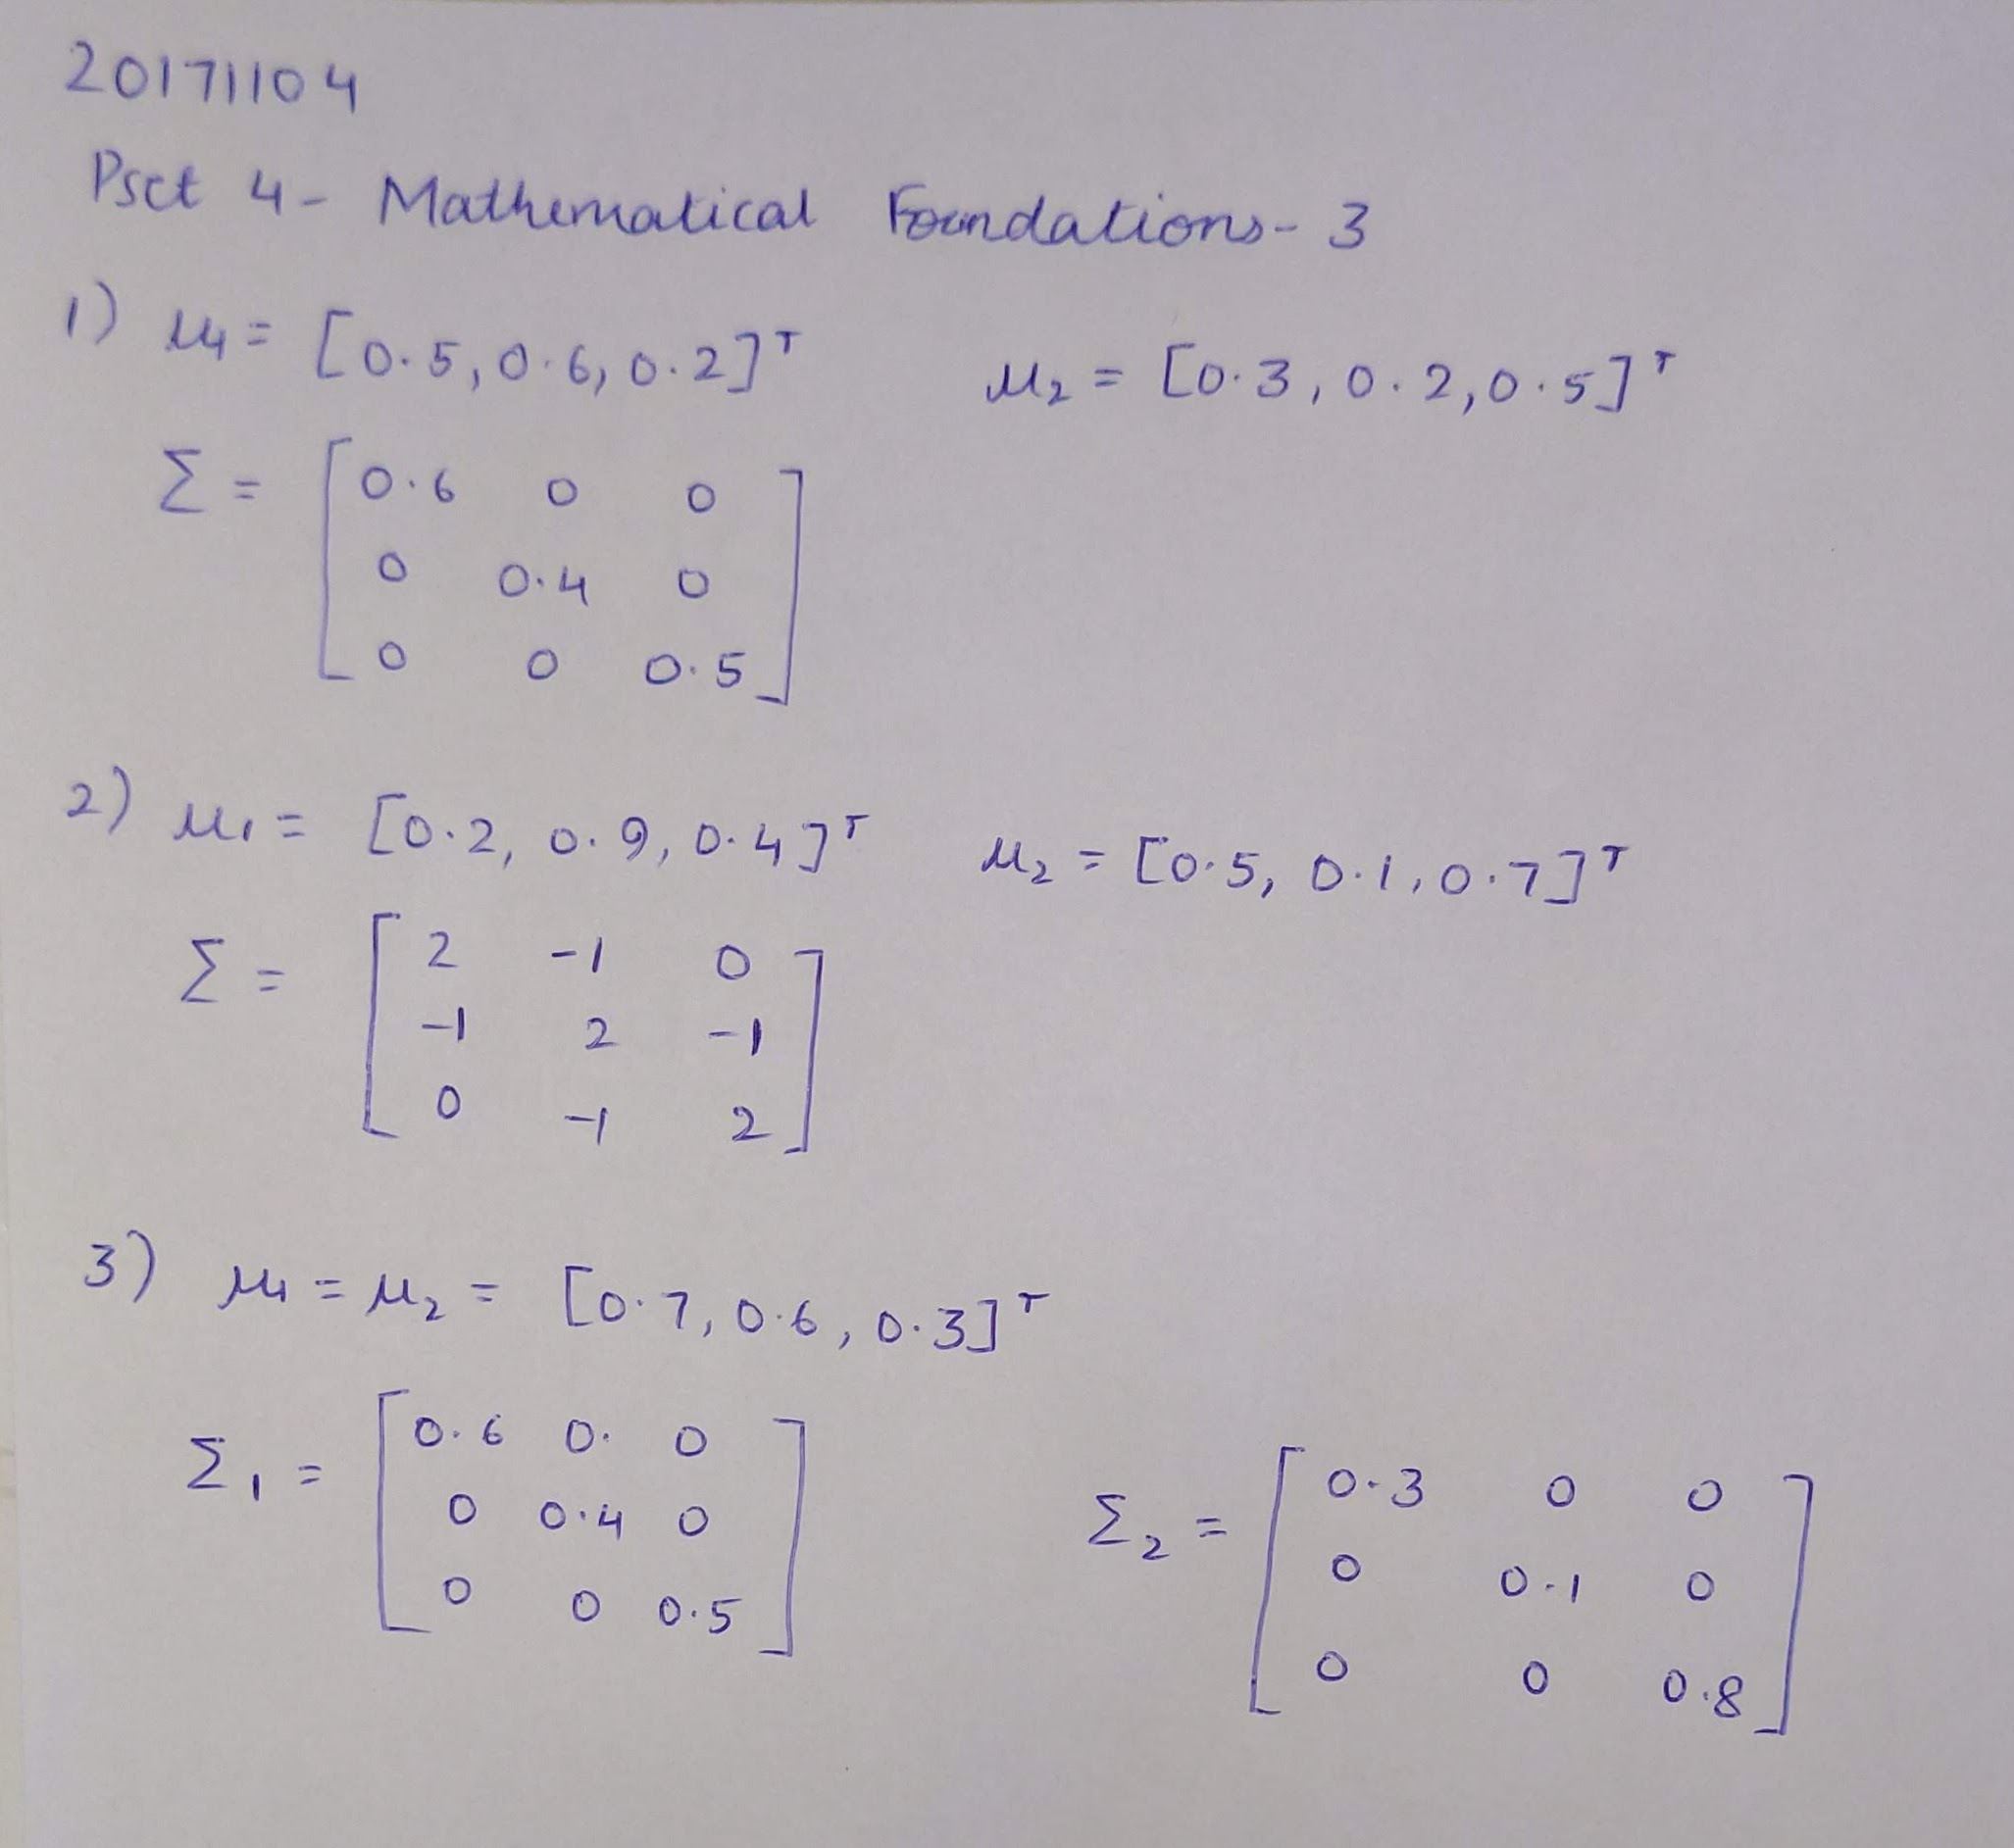 20171104
Pset 4- Mathematical Foundations- 3
1) μ₁ = [0.5, 0.6, 0.2]ᵀ μ₂ = [0.3, 0.2, 0.5]ᵀ
Σ = [0.6 0 0
0 0.4 0
0 0 0.5]
2) μ₁ = [0.2, 0.9, 0.4]ᵀ μ₂ = [0.5, 0.1, 0.7]ᵀ
Σ = [2 -1 0
-1 2 -1
0 -1 2]
3) μ₁ = μ₂ = [0.7, 0.6, 0.3]ᵀ
Σ₁ = [0.6 0. 0
0 0.4 0
0 0 0.5]
Σ₂ = [0.3 0 0
0 0.1 0
0 0 0.8]